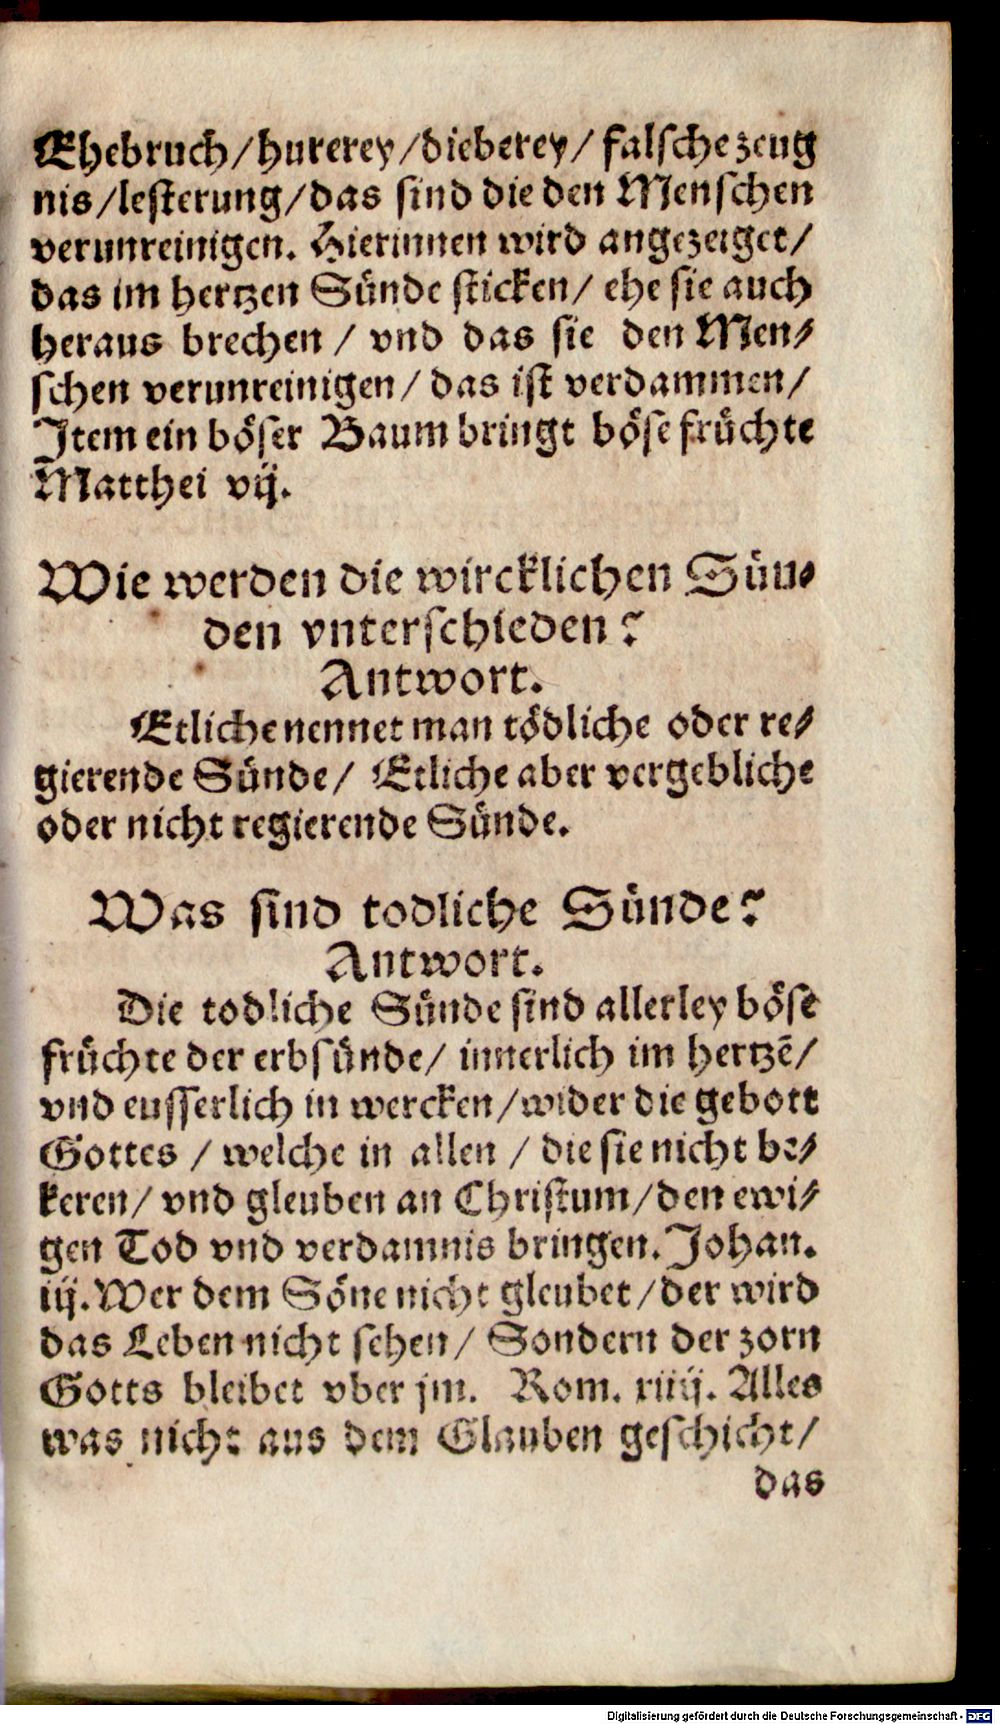 Ehebruch/hurerey/dieberey/ falsche zeug
nis/lesterung/das sind die den Menschen
verunreinigen. Hierinnen wird angezeiget/
das im hertzen Sünde sticken/ ehe sie auch
heraus brechen / vnd das sie den Men⸗
schen verunreinigen/ das ist verdammen/
Item ein böser Baum bringt böse früchte
Matthei vij.
Wie werden die wircklichen Sün⸗
den vnterschieden?
Antwort.
Etliche nennet man tödliche oder re⸗
gierende Sünde/ Etliche aber vergebliche
oder nicht regierende Sünde.
Was sind todliche Sünde?
Antwort.
Die todliche Sünde sind allerley böse
früchte der erbsünde/ innerlich im hertzē/
vnd eusserlich in wercken/wider die gebott
Gottes / welche in allen / die sie nicht be⸗
keren/ vnd gleuben an Christum/den ewi⸗
gen Tod vnd verdamnis bringen. Johan.
iij. Wer dem Söne nicht gleubet/der wird
das Leben nicht sehen/ Sondern der zorn
Gotts bleibet vber jm. Rom. xiiij. Alles
was nicht aus dem Glauben geschicht/
das
Digitalisierung gefördert durch die Deutsche Forschungsgemeinschaft - DFG